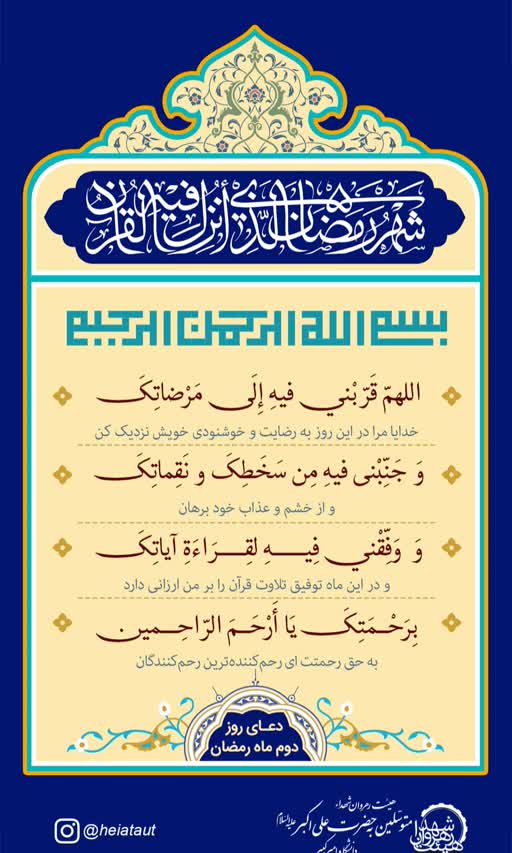 شَهْرُ رَمَضانَ الَّذي أُنْزِلَ فيهِ القُرآن
بسم الله الرحمن الرحیم
اللهمّ قَرّبْني فيهِ إِلَى مَرْضاتِکَ
خدایا مرا در این روز به رضایت و خوشنودی خویش نزدیک کن
وَ جَنِّبْنی فيهِ مِن سَخَطِکَ و نَقِماتِکَ
و از خشم و عذاب خود برهان
وَ وَفِّقْني فِيــهِ لِقِــرَاءَةِ آياتِکَ
و در این ماه توفیق تلاوت قرآن را بر من ارزانی دارد
بِرَحْـمَتِکَ يَا أَرْحَـمَ الرّاحِـمين
به حق رحمتت ای رحم‌کننده‌ترین رحم‌کنندگان
دعـای روز
دوم ماه رمضان
هیئت رهروان شهداء
متوسلین به حضرت علی اکبر علیه‌السلام
دانشگاه امیرکبیر
@heiataut